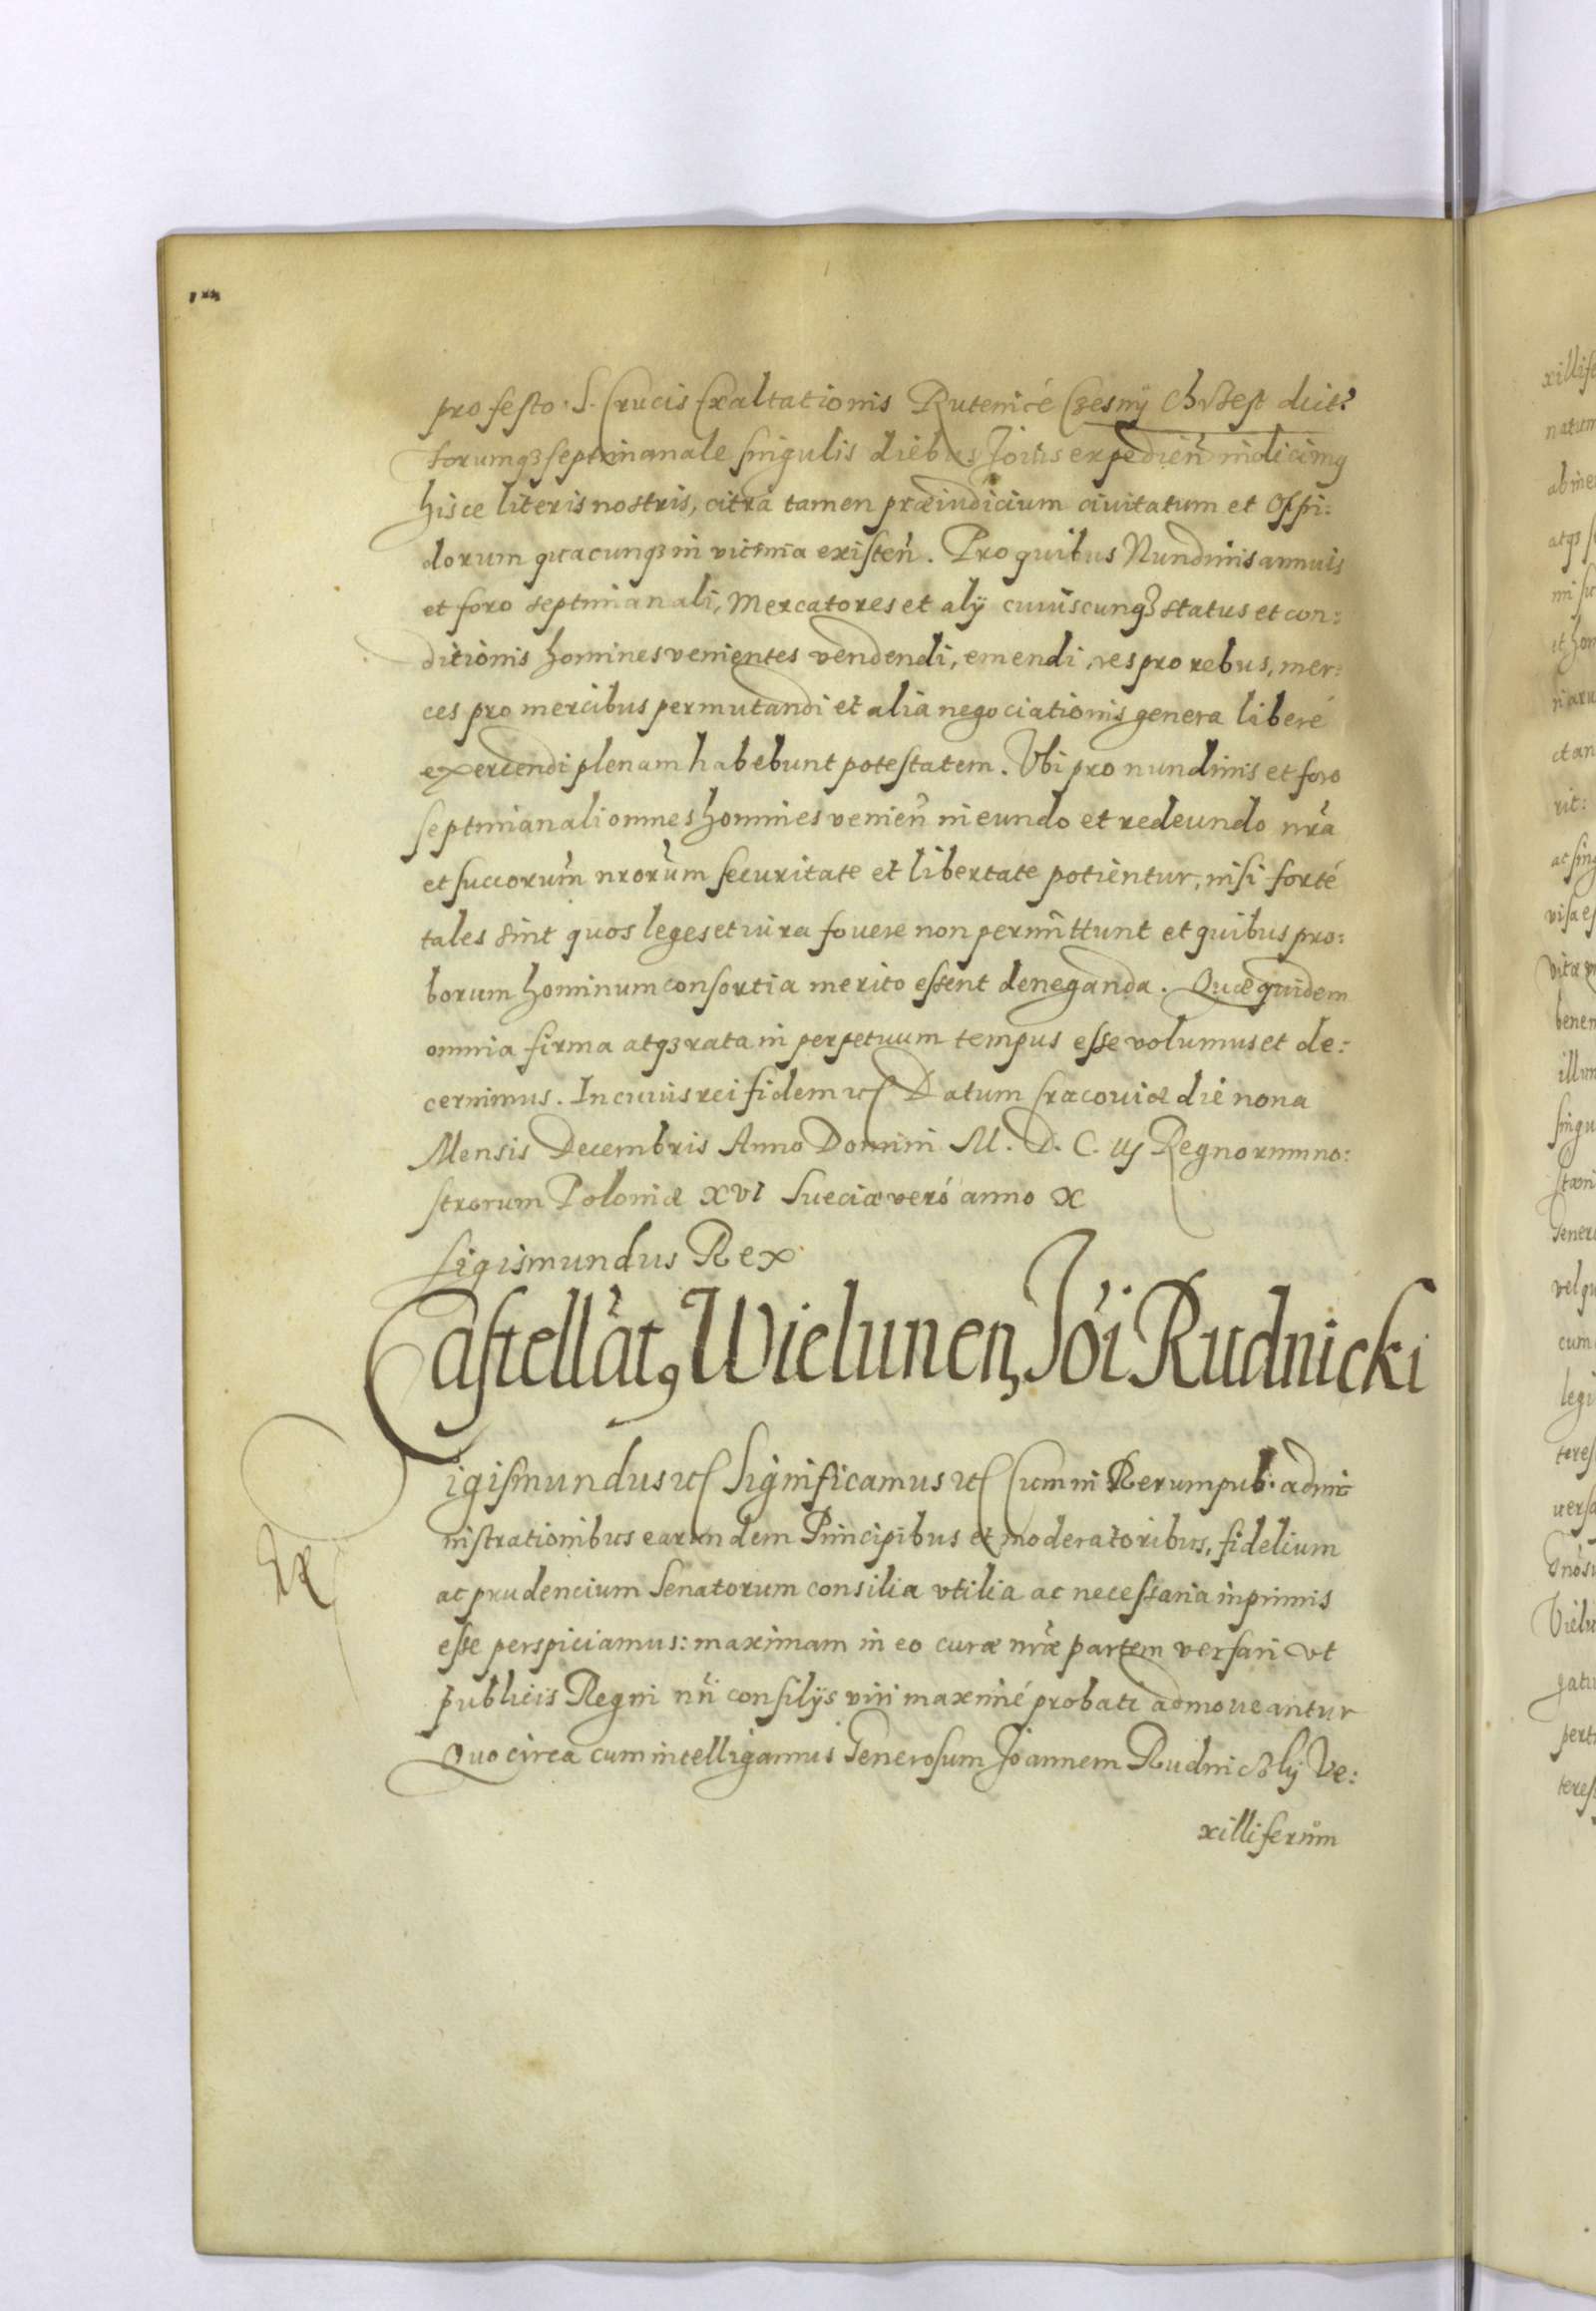 pro festo S. Crucis Exaltationis Rutenicé Czesnÿ Chrzest dict:
forumqȝ septimanale singulis diebus Jouis expedien̄ indicimq
hisce literis nostris, citrà tamen præiudicium ciuitatum et Oppi:
dorum quacunqȝ in vicinia existen̄. Pro quibus Nundinis annuis
et foro septimanali, Mercatores et alÿ cuiuscunqȝ status et con:
ditionis homines venientes vendendi, emendi, res pro rebus, mer:
ces pro mercibus permutandi et alia negociationis genera liberé
exercendi plenam habebunt potestatem. Vbi pro nundinis et foro
septimanali omnes homines venien̄ in eundo et redeundo nr̄a
et succorum̄ nrorum̄ securitate et libertate potientur, nisi forté
tales sint quos leges et iura fouere non permittunt et quibus pro:
borum hominum consortia merito essent deneganda. Quæ quidem
omnia firma atqȝ rata in perpetuum tempus esse volumus et de:
cernimus. In cuius rei fidem etc Datum Cracouiæ die nona
Mensis Decembris Anno Domini M. D. C. iij Regnorum no:
strorum Poloniæ XVI Sueciæ veró anno X
Sigismundus Rex
Castellat9 Wielunen̄ Jōi Rudnicki
igismundus etc Significamus etc Cum in Rerumpub: admi
nistrationibus earundem Principibus et moderatoribus, fidelium
ac prudencium Senatorum consilia vtilia ac necessaria inprimis
esse perspiciamus: maximam in eo curæ nr̄æ partem versari vt
publicis Regni nr̄i consilÿs viri maximé probati admoueantur
Quo circa cum intelligamus Generosum Joannem Rudnicky Ve:
xilliferum